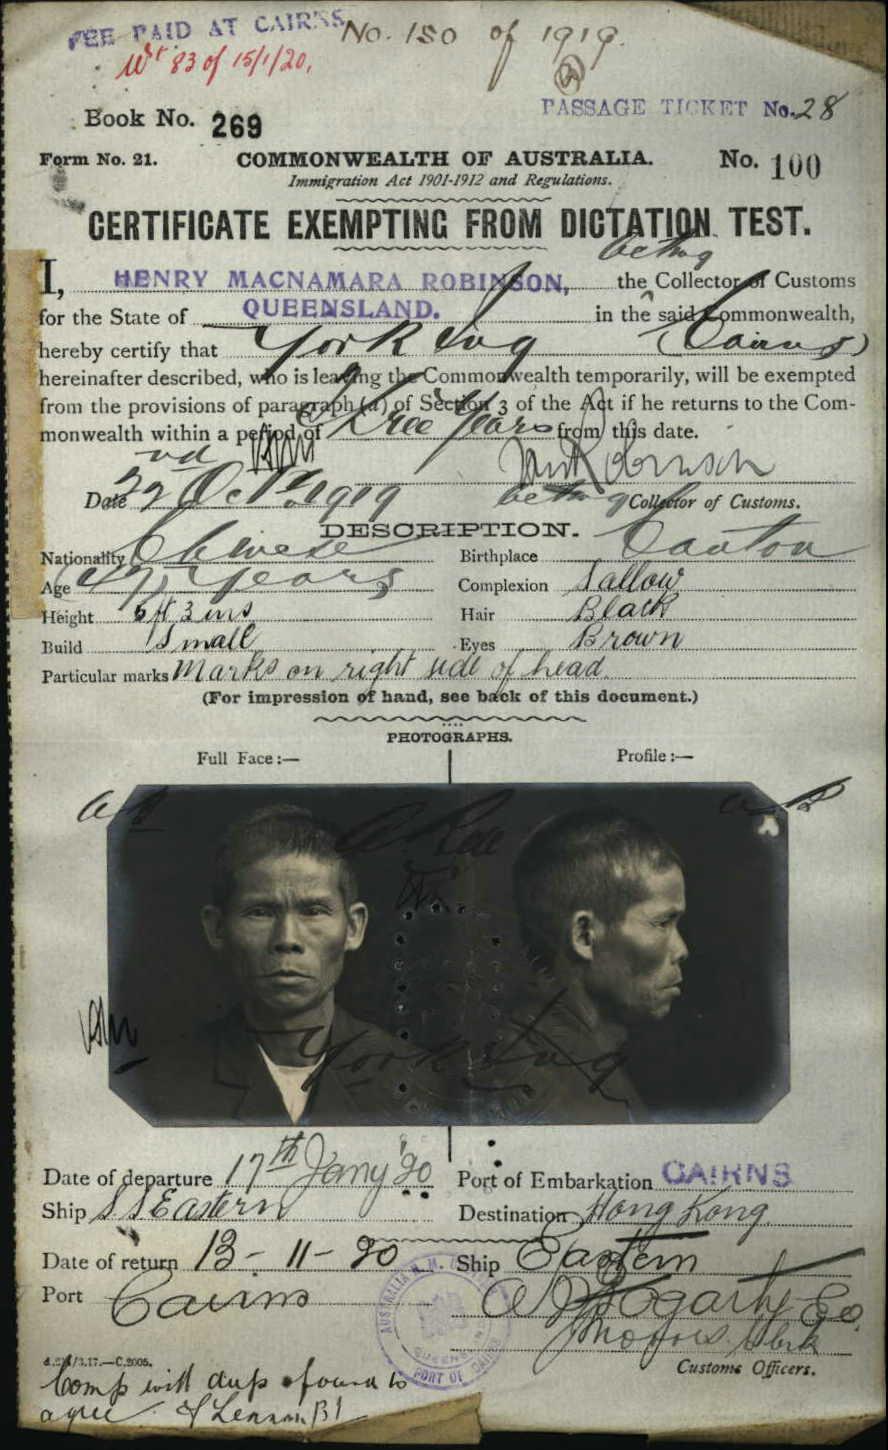 FEE PAID AT CAIRNS No. 150 of 1919.
Wt 83 of 15/1/20.
Book No. 269
PASSAGE TICKET No. 28
Form No. 21. COMMONWEALTH OF AUSTRALIA. No. 100
Immigration Act 1901-1912 and Regulations.
CERTIFICATE EXEMPTING FROM DICTATION TEST.
acting
I, HENRY MACNAMARA ROBINSON, the Collector of Customs
for the State of QUEENSLAND. in the said Commonwealth,
hereby certify that York Sug (Cairns)
hereinafter described, who is leaving the Commonwealth temporarily, will be exempted
from the provisions of paragraph (a) of Section 3 of the Act if he returns to the Com-
monwealth within a period of Three Years from this date.
Date 22nd Oct. 1919 acting Collector of Customs.
DESCRIPTION.
Nationality Chinese Birthplace Canton
Age 47 Years Complexion Sallow
Height 5 ft 3 ins Hair Black
Build Small Eyes Brown
Particular marks Marks on right side of head.
(For impression of hand, see back of this document.)
PHOTOGRAPHS.
Full Face:— Profile:—
York Sug
Date of departure 17th Jany '20 Port of Embarkation CAIRNS
Ship SS Eastern Destination Hong Kong
Date of return 13-11-20 Ship Eastern
Port Cairns
Customs Officers.
PORT OF CAIRNS
Comp with dup & found to
agree